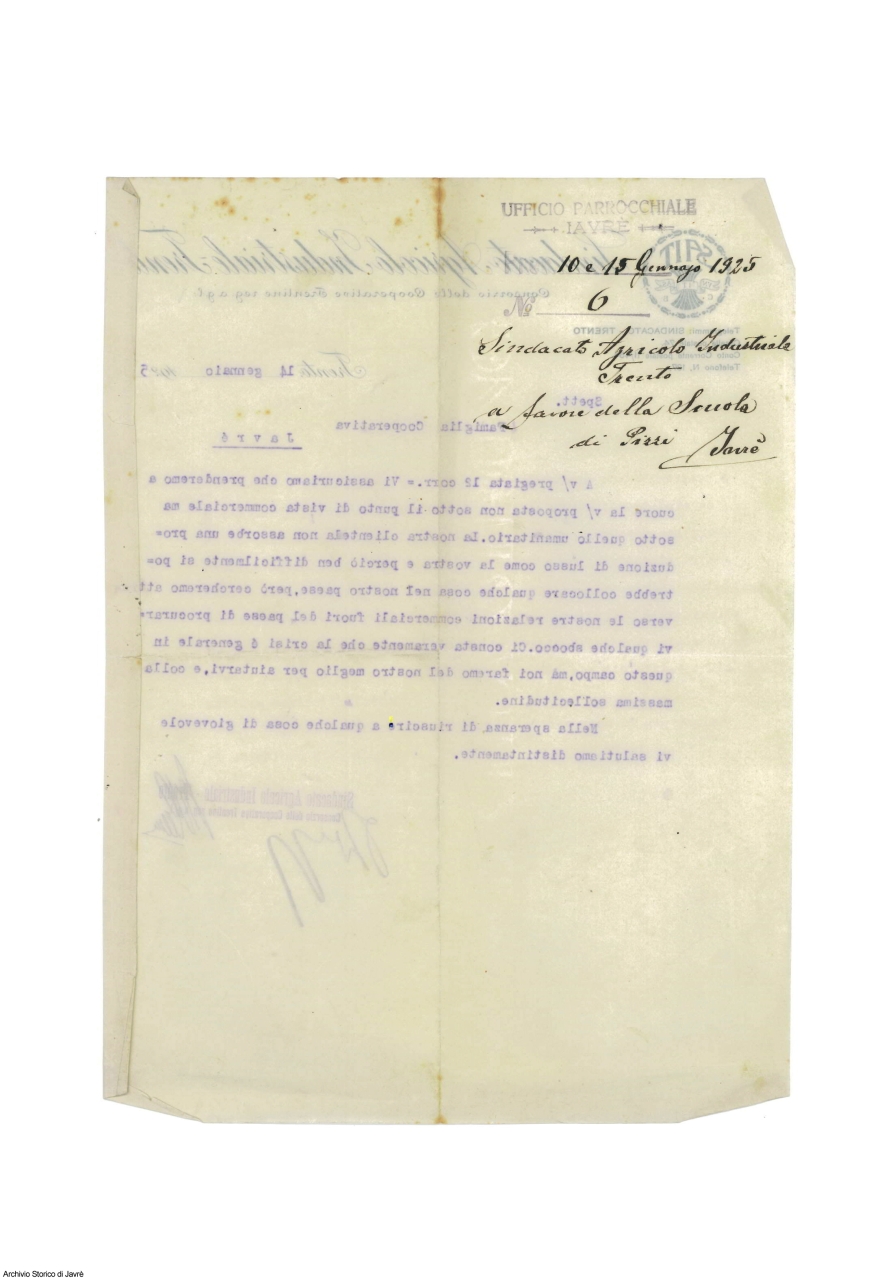 UFFICIO PARROCCHIALE
IAVRÈ
10 e 15 Gennajo 1925
№ 6
Sindacato Agricolo Industriale
Trento
a favore della Scuola
di Pizzi Javrè
Sindacato Agricolo Industriale Tren
SAIT
Consorzio delle Cooperative Trentine reg. a g. l.
SINDACATO TRENTO
Telefono N.
Trento 14 gennaio 1925
Spett.
Famiglia Cooperativa
Javré
A v/ pregiata 12 corr.= Vi assicuriamo che prenderemo a
cuore la v/ proposta non sotto il punto di vista commerciale ma
sotto quello umanitario.La nostra clientela non assorbe una pro=
duzione di lusso come la vostra e perciò ben difficilmente si po=
trebbe collocare qualche cosa nel nostro paese,però cercheremo att
verso le nostre relazioni commerciali fuori del paese di procurar=
vi qualche sbocco.Ci consta veramente che la crisi é generale in
questo campo,má noi faremo del nostro meglio per aiutarvi,e colla
massima sollecitudine.
Nella speranza di riuscire a qualche cosa di giovevole
vi salutiamo distintamente.
Sindacato Agricolo Industriale - Trento
Consorzio delle Cooperative Trentine
Archivio Storico di Javrè